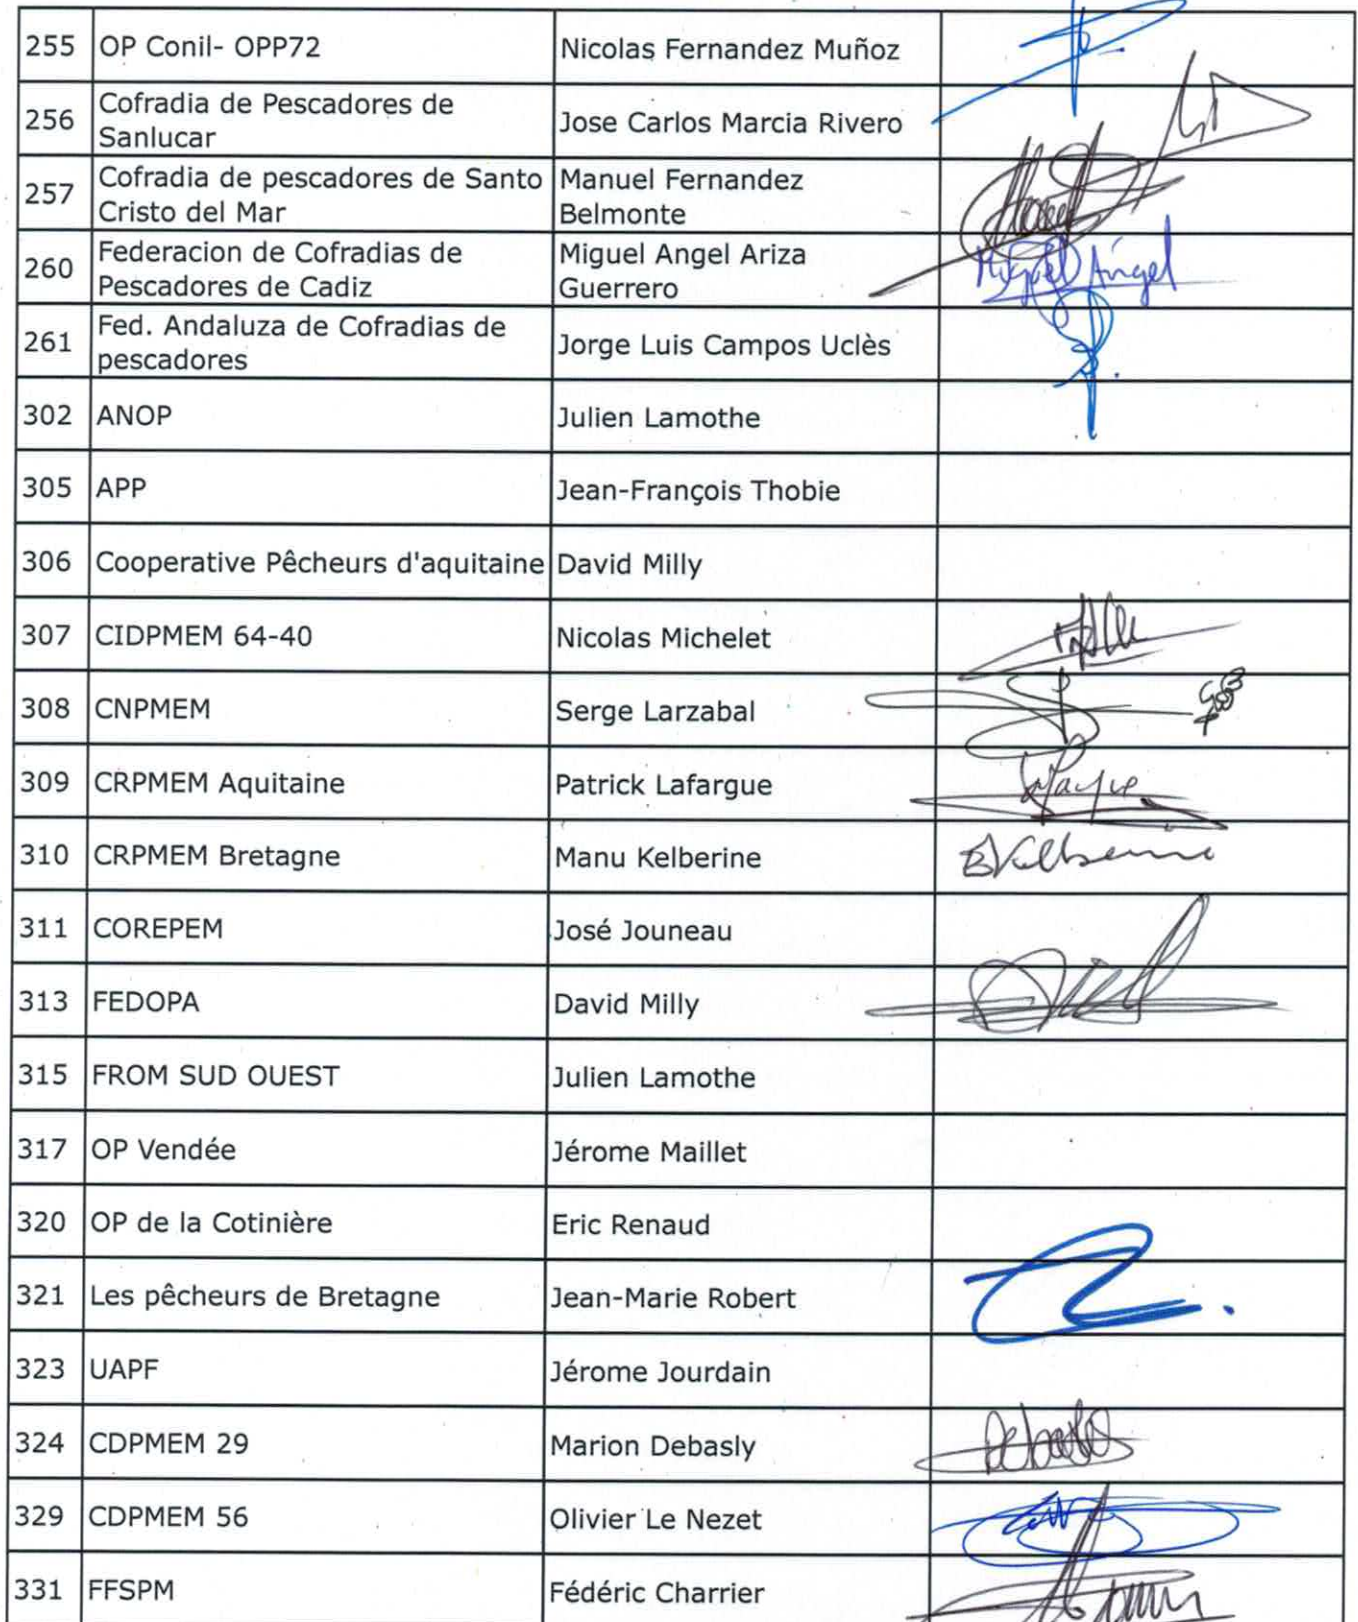 255 OP Conil- OPP72 Nicolas Fernandez Muñoz
256 Cofradia de Pescadores de
Sanlucar Jose Carlos Marcia Rivero
257 Cofradia de pescadores de Santo
Cristo del Mar Manuel Fernandez
Belmonte
260 Federacion de Cofradias de
Pescadores de Cadiz Miguel Angel Ariza
Guerrero Miguel Ángel
261 Fed. Andaluza de Cofradias de
pescadores Jorge Luis Campos Uclès
302 ANOP Julien Lamothe
305 APP Jean-François Thobie
306 Cooperative Pêcheurs d'aquitaine David Milly
307 CIDPMEM 64-40 Nicolas Michelet
308 CNPMEM Serge Larzabal
309 CRPMEM Aquitaine Patrick Lafargue
310 CRPMEM Bretagne Manu Kelberine
311 COREPEM José Jouneau
313 FEDOPA David Milly
315 FROM SUD OUEST Julien Lamothe
317 OP Vendée Jérome Maillet
320 OP de la Cotinière Eric Renaud
321 Les pêcheurs de Bretagne Jean-Marie Robert
323 UAPF Jérome Jourdain
324 CDPMEM 29 Marion Debasly
329 CDPMEM 56 Olivier Le Nezet
331 FFSPM Fédéric Charrier